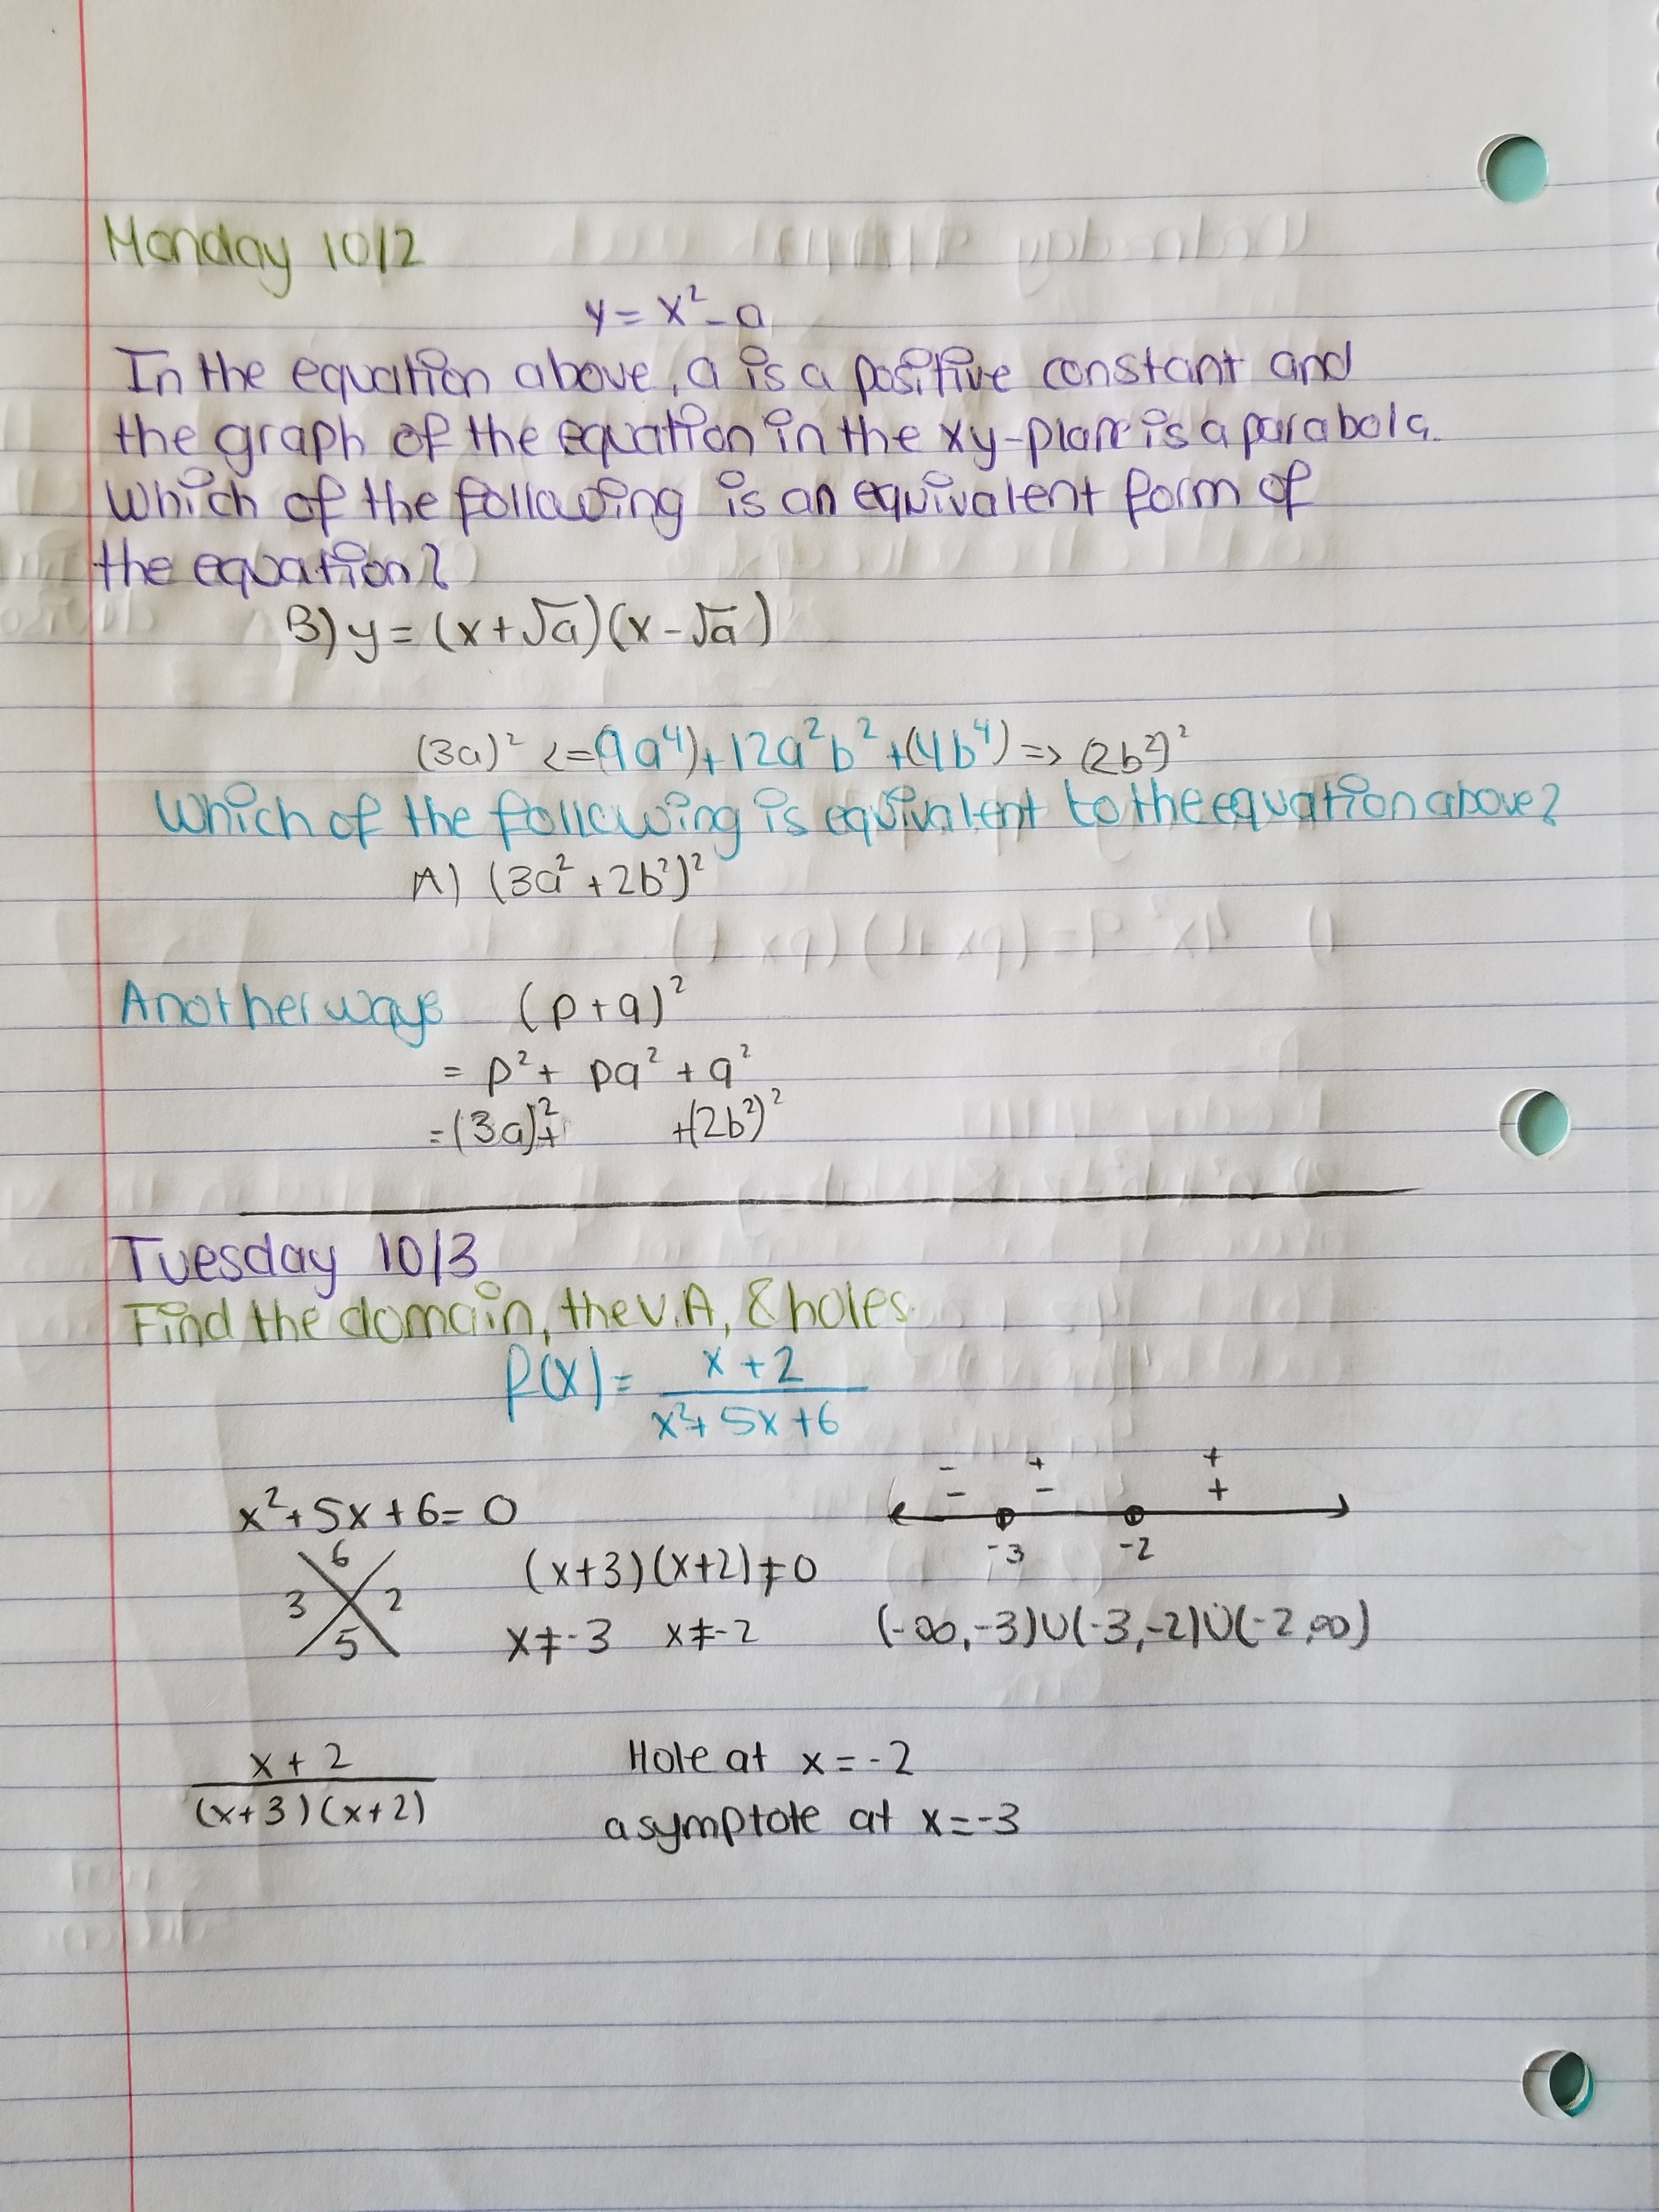 Monday 10/2
y = x² - a
In the equation above, a is a positive constant and
the graph of the equation in the xy-plane is a parabola.
Which of the following is an equivalent form of
the equation?
B) y = (x+√a)(x-√a)
(3a)² <= (9a⁴) + 12a²b² + (4b⁴) => (2b²)²
Which of the following is equivalent to the equation above?
A) (3a² + 2b²)²
Another ways (p+q)²
= p² + pq² + q²
= (3a)² + +(2b²)²
Tuesday 10/3
Find the domain, the V.A, & holes.
f(x) = x+2
x² + 5x + 6
- + +
- - +
x² + 5x + 6 = 0
-3 -2
6
3 2
5
(x+3)(x+2) ≠ 0
x ≠ -3 x ≠ -2
(-∞,-3)∪(-3,-2)∪(-2,∞)
x + 2
(x+3)(x+2)
Hole at x = -2
asymptote at x = -3